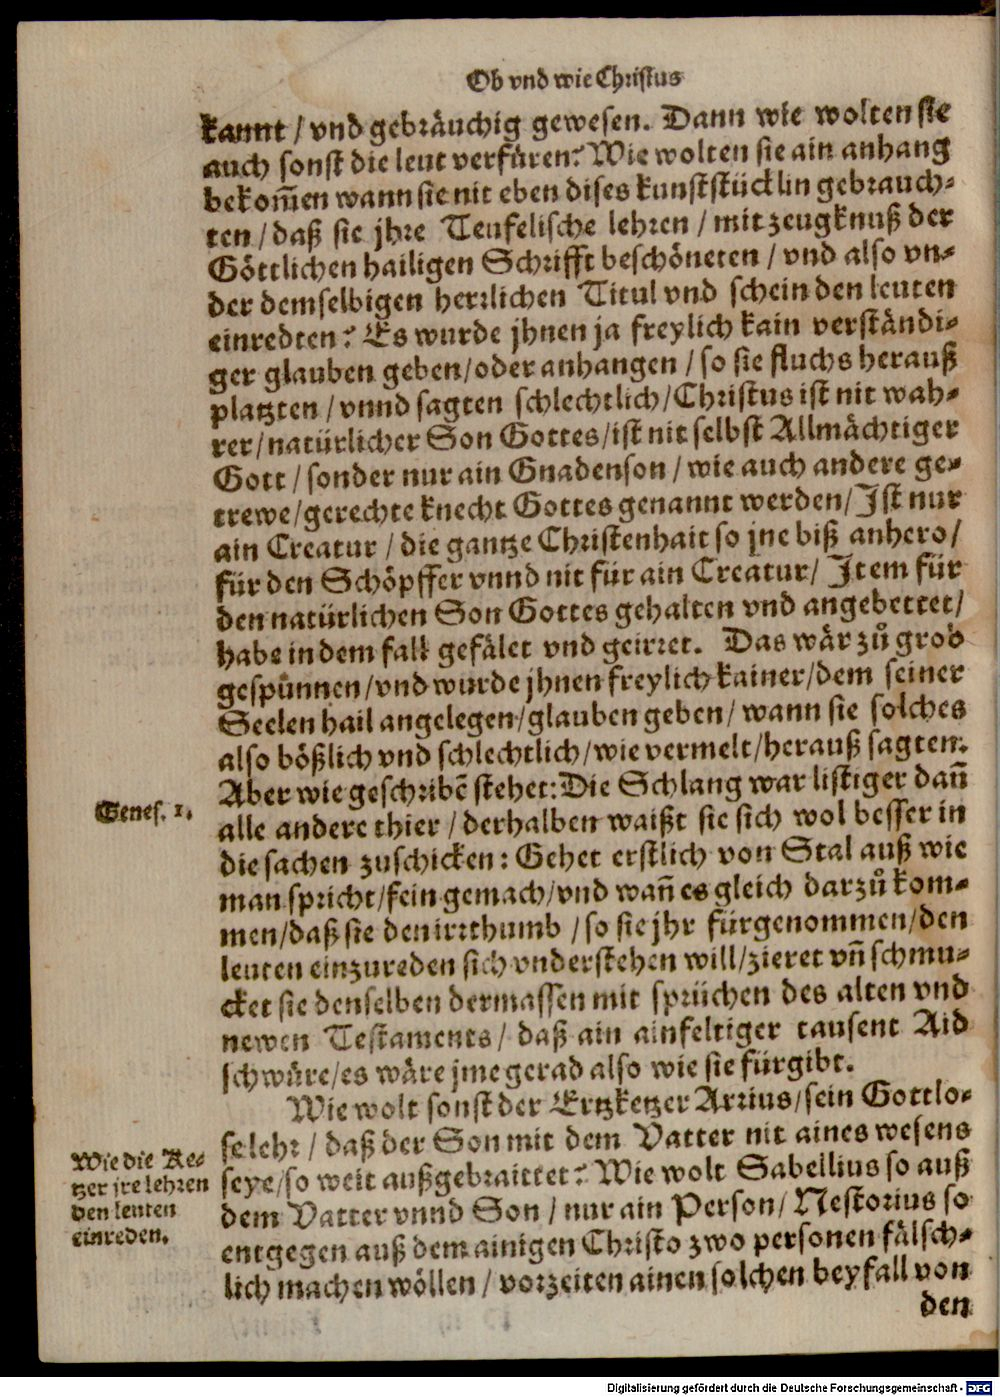 Ob vnd wie Christus
kannt / vnd gebräuchig gewesen. Dann wie wolten sie
auch sonst die leut verfüren? Wie wolten sie ain anhang
bekom̃en wann sie nit eben dises kunststücklin gebrauch-
ten / daß sie jhre Teufelische lehren / mit zeugknuß der
Göttlichen hailigen Schrifft beschöneten / vnd also vn-
der demselbigen herrlichen Titul vnd schein den leuten
einredten? Es wurde jhnen ja freylich kain verständi-
ger glauben geben/oder anhangen / so sie fluchs herauß
platzten / vnnd sagten schlechtlich/Christus ist nit wah-
rer/natürlicher Son Gottes/ist nit selbst Allmächtiger
Gott / sonder nur ain Gnadenson / wie auch andere ge-
trewe/gerechte knecht Gottes genannt werden/Ist nur
ain Creatur / die gantze Christenhait so jne biß anhero/
für den Schöpffer vnnd nit für ain Creatur/ Item für
den natürlichen Son Gottes gehalten vnd angebettet/
habe in dem fall gefälet vnd geirret. Das wär zů grob
gespunnen/vnd wurde jhnen freylich kainer/dem seiner
Seelen hail angelegen/glauben geben/ wann sie solches
also bößlich vnd schlechtlich/wie vermelt/herauß sagten.
Aber wie geschribẽ stehet: Die Schlang war listiger dañ
Genes. 1.
alle andere thier / derhalben waißt sie sich wol besser in
die sachen zuschicken: Gehet erstlich von Stal auß wie
man spricht/fein gemach/vnd wañ es gleich darzů kom-
men/daß sie den irrthumb / so sie jhr fürgenommen/den
leuten einzureden sich vnderstehen will/zieret vñ schmu-
cket sie denselben dermassen mit sprüchen des alten vnd
newen Testaments/ daß ain ainfeltiger tausent Aid
schwüre/es wäre jme gerad also wie sie fürgibt.
Wie wolt sonst der Ertzketzer Arrius/sein Gottlo-
se lehr / daß der Son mit dem Vatter nit aines wesens
Wie die Ke-
tzer jre lehren
den leuten
einreden.
seye/so weit außgebraittet? Wie wolt Sabellius so auß
dem Vatter vnnd Son / nur ain Person/ Nestorius so
entgegen auß dem ainigen Christo zwo personen fälsch-
lich machen wöllen / vorzeiten ainen solchen beyfall von
den
Digitalisierung gefördert durch die Deutsche Forschungsgemeinschaft - DFG